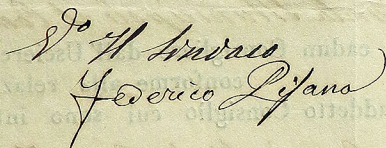 Vº Il Sindaco
Federico Pisano